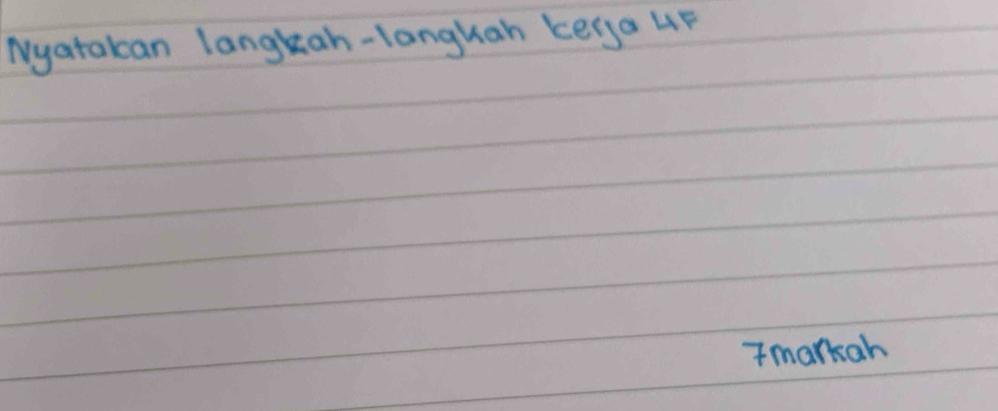 Nyatakan langkah-langkah kerja 4F
7 markah